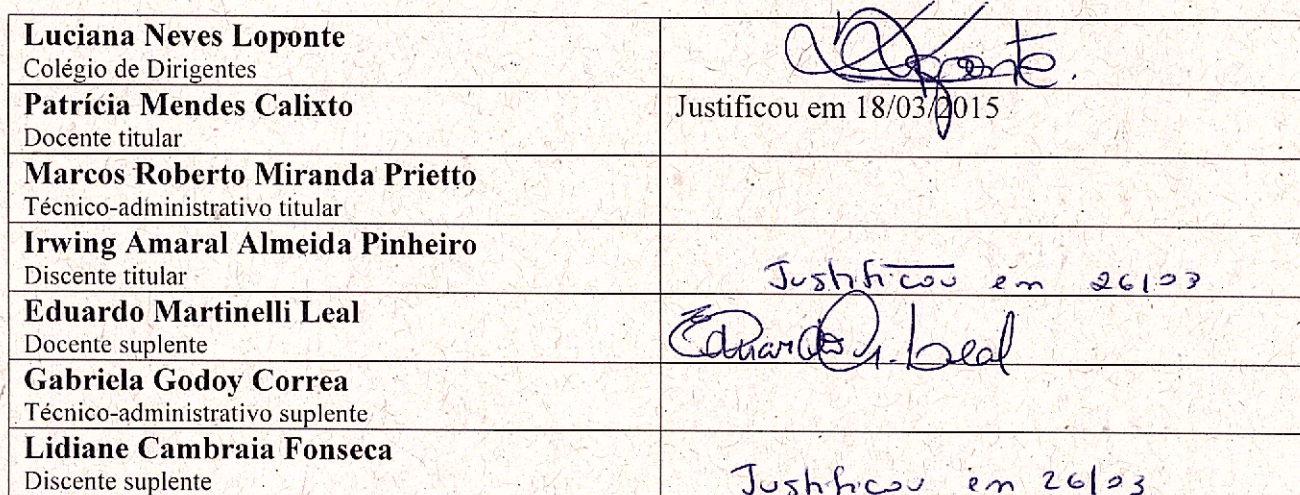 Luciana Neves Loponte
Colégio de Dirigentes
Patrícia Mendes Calixto
Docente titular
Justificou em 18/03/2015
Marcos Roberto Miranda Prietto
Técnico-administrativo titular
Irwing Amaral Almeida Pinheiro
Discente titular
Justificou em 26/03
Eduardo Martinelli Leal
Docente suplente
Eduardo M. Leal
Gabriela Godoy Correa
Técnico-administrativo suplente
Lidiane Cambraia Fonseca
Discente suplente
Justificou em 26/03